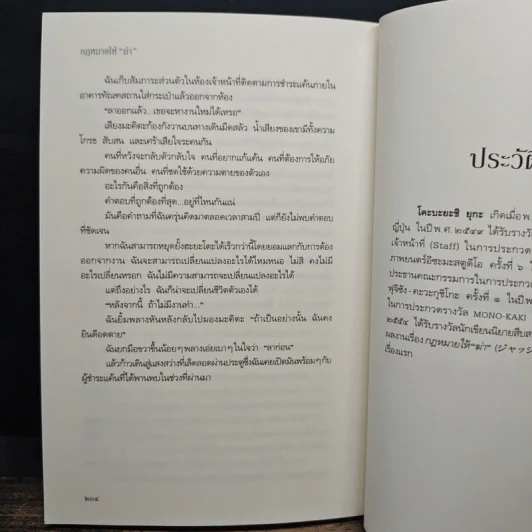 กฎหมายให้ “ฆ่า”
ฉันเก็บสัมภาระส่วนตัวในห้องเจ้าหน้าที่ติดตามการชำระแค้นภายใน
อาคารทัณฑสถานใส่กระเป๋าแล้วออกจากห้อง
“ลาออกแล้ว...เธอจะหางานใหม่ได้เหรอ”
เสียงมะคิตะก้องกังวานบนทางเดินมืดสลัว น้ำเสียงของเขามีทั้งความ
โกรธ สับสน และเศร้าเสียใจระคนกัน
คนที่หวังจะกลับตัวกลับใจ คนที่อยากแก้แค้น คนที่ต้องการให้อภัย
ความผิดของคนอื่น คนที่ชดใช้ด้วยความตายของตัวเอง
อะไรกันคือสิ่งที่ถูกต้อง
คำตอบที่ถูกต้องที่สุด...อยู่ที่ไหนกันแน่
มันคือคำถามที่ฉันครุ่นคิดมาตลอดเวลาสามปี แต่ก็ยังไม่พบคำตอบ
ที่ชัดเจน
หากฉันสามารถหยุดยั้งสะยะโดะได้เร็วกว่านี้โดยยอมแลกกับการต้อง
ออกจากงาน ฉันจะสามารถเปลี่ยนแปลงอะไรได้ไหมหนอ ไม่สิ คงไม่มี
อะไรเปลี่ยนหรอก ฉันไม่มีความสามารถจะเปลี่ยนแปลงอะไรได้
แต่ถึงอย่างไร ฉันก็น่าจะเปลี่ยนชีวิตตัวเองได้
“หลังจากนี้ ถ้าไม่มีงานทำ...”
ฉันยิ้มพลางหันหลังกลับไปมองมะคิตะ “ถ้าเป็นอย่างนั้น ฉันคง
ยินดีอดตาย”
ฉันยกมือขวาขึ้นน้อยๆ พลางเอ่ยเบาๆ ในใจว่า “ลาก่อน”
แล้วก้าวเดินสู่แสงสว่างที่เล็ดลอดผ่านประตูซึ่งฉันเคยเปิดมันพร้อมๆ กับ
ผู้ชำระแค้นที่ได้พานพบในช่วงที่ผ่านมา
๒๐๔
ประวัติ
โคะบะยะชิ ยุกะ เกิดเมื่อพ.
ญี่ปุ่น ในปีพ.ศ. ๒๕๔๙ ได้รับรางวัล
เจ้าหน้าที่ (Staff) ในการประกวด
ภาพยนตร์อิซะมะสตูดิโอ ครั้งที่ ๖ ใ
ประธานคณะกรรมการในการประกวด
ฟุจิซัง-คะวะกุชิโกะ ครั้งที่ ๑ ในปีพ
ในการประกวดรางวัล MONO-KAKI
๒๕๕๔ ได้รับรางวัลนักเขียนนิยายสืบส
ผลงานเรื่อง กฎหมายให้ “ฆ่า” (ジャッジ
เรื่องแรก